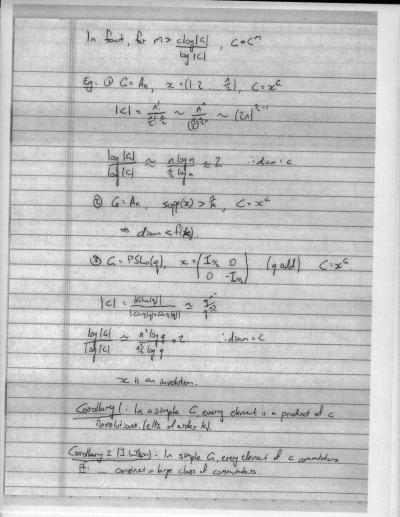 In fact, for m > c log|G| / log|C| , G = C^m
Eg: ① G = An, x = (1 2 ... n/2), C = x^G
|C| = n! / (n/2)! n/2 ~ ~ (2n)^(n/2 - 1)
log|G| / log|C| ≈ n log n / n/2 log n ≈ 2 ∴ diam = c.
② G = An, supp(x) > n/k, C = x^G
⇒ diam < f(k).
③ G = PSLn(q), x = ( I n/2 0 (q odd) C = x^G
0 -I n/2 )
|C| = |GLn(q)| / ≈
log|G| / log|C| ≈ n² log q / log q = 2 ∴ diam = c
x is an involution.
Corollary 1: In a simple G, every element is a product of c
involutions. (elts of order k).
Corollary 2 (J. Wilson): In simple G, every element of c commutators.
Pf: construct a large class of commutators.